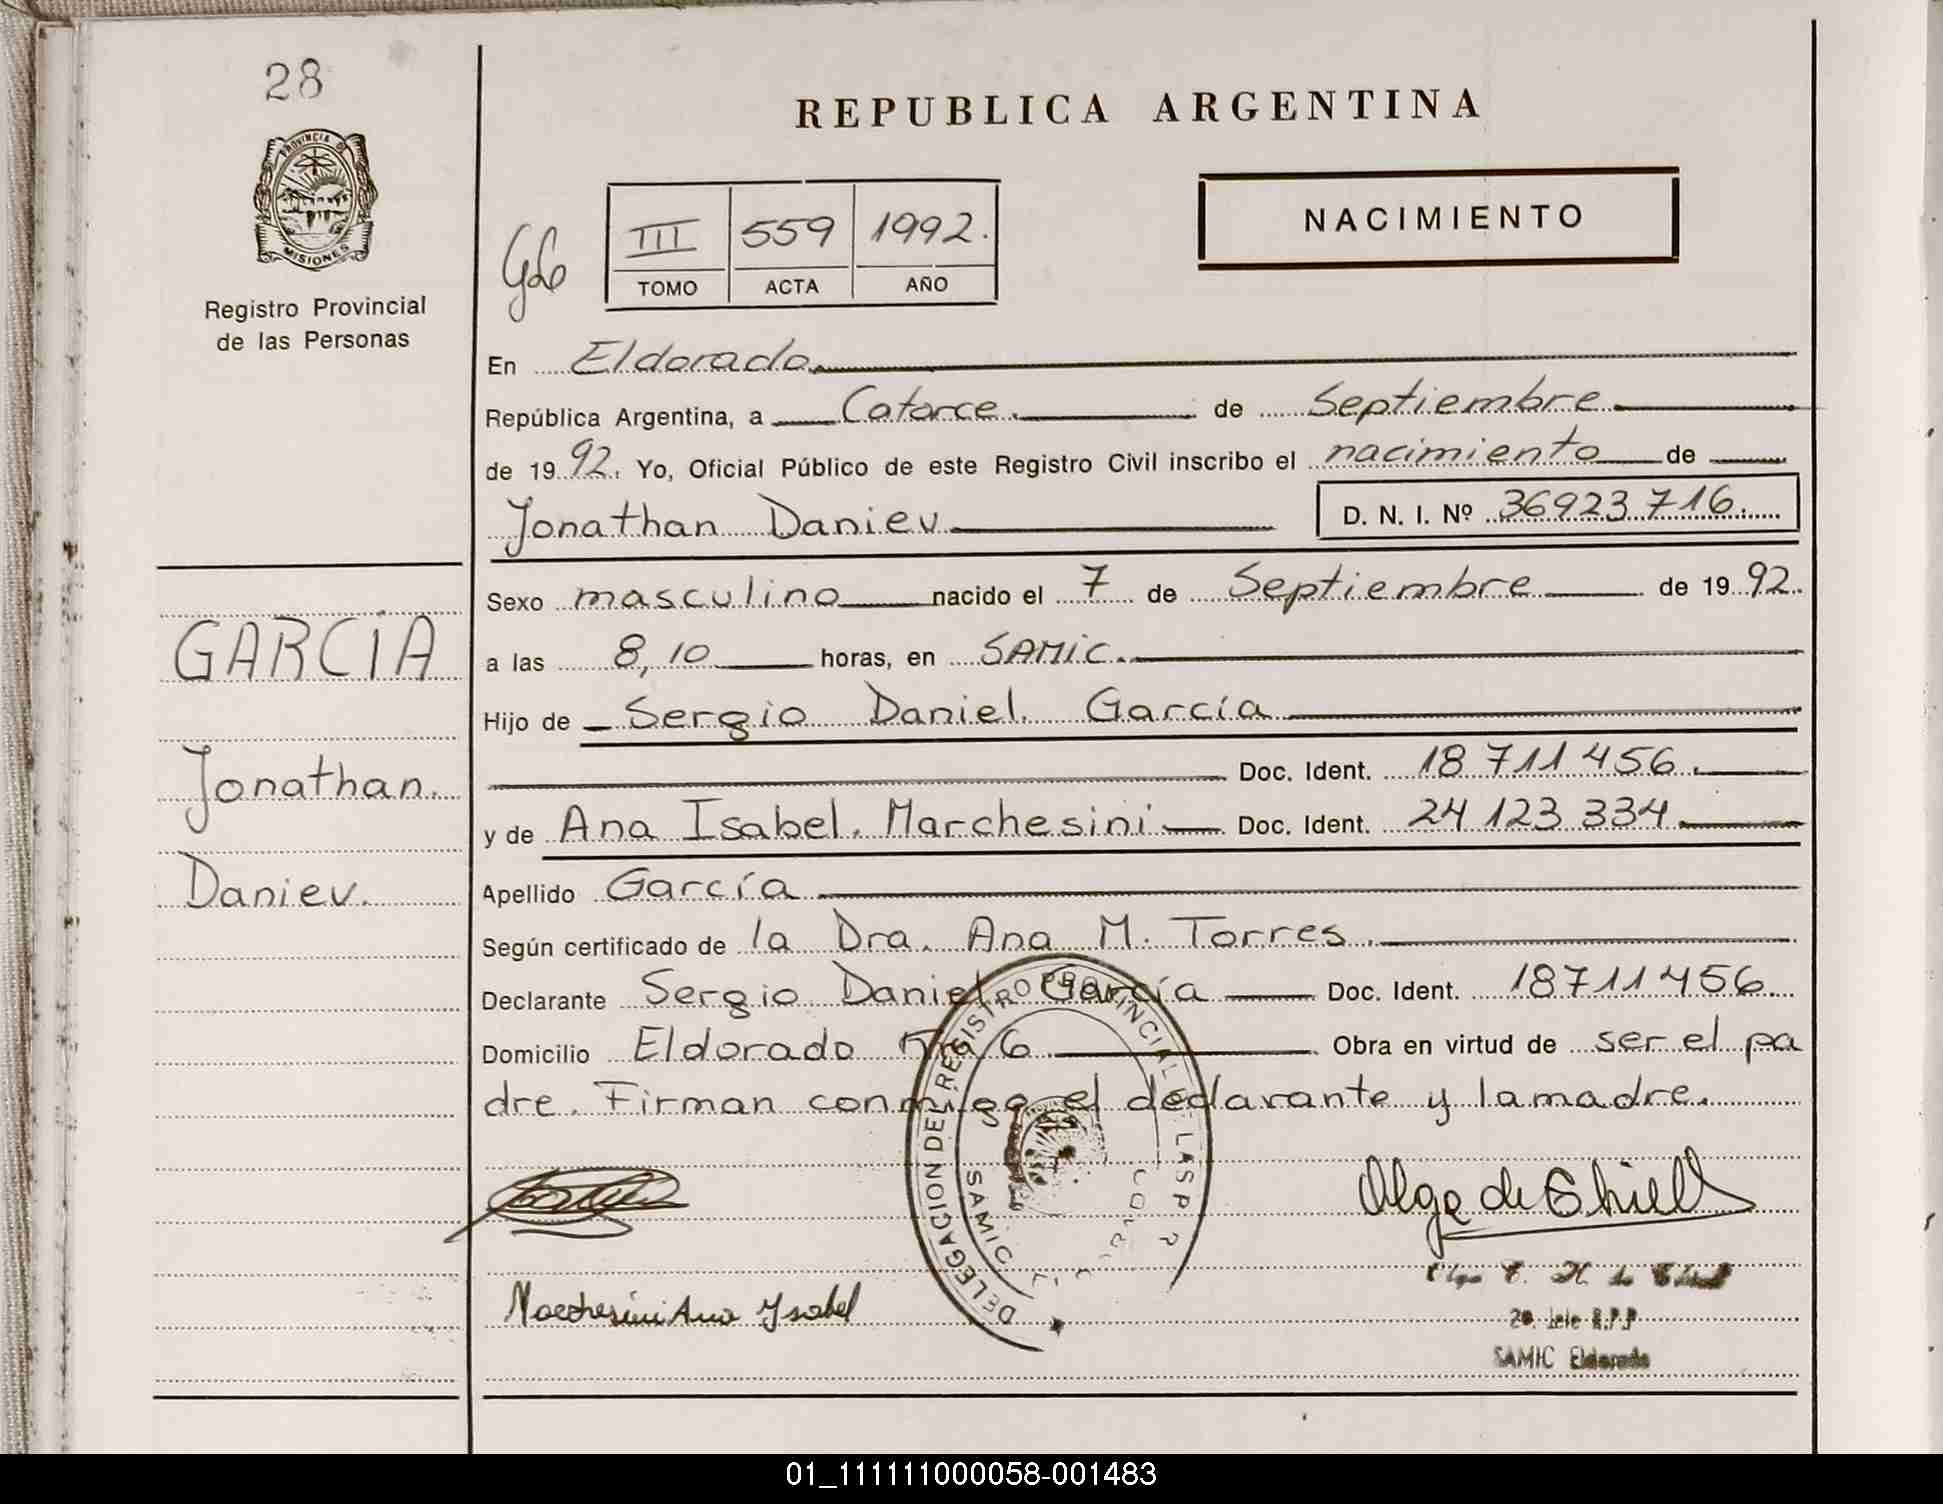 28
PROVINCIA D
MISIONES
Registro Provincial
de las Personas
REPUBLICA ARGENTINA
NACIMIENTO
III 559 1992.
TOMO ACTA AÑO
En Eldorado
República Argentina, a Catorce. de Septiembre
de 1992. Yo, Oficial Público de este Registro Civil inscribo el nacimiento de
Jonathan Daniev D. N. I. Nº 36923716.
Sexo masculino nacido el 7 de Septiembre de 1992.
a las 8,10 horas, en SAMIC.
Hijo de Sergio Daniel García
Doc. Ident. 18 711 456.
y de Ana Isabel Marchesini Doc. Ident. 24 123 334.
Apellido García
Según certificado de la Dra. Ana M. Torres.
Declarante Sergio Daniel García Doc. Ident. 18711456.
Domicilio Eldorado Km 6 Obra en virtud de ser el pa
dre. Firman conmigo el declarante y la madre.
GARCÍA
Jonathan.
Daniev.
DELEGACION DEL REGISTRO PROVINCIAL DE LAS P
SAMIC
Marchesini Ana Ysabel
Olga de
Olga
2º. Jefe R.P.P
SAMIC Eldorado
01_111111000058-001483